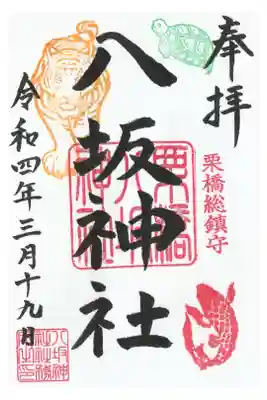 奉拝
栗橋総鎮守
八坂神社
令和四年三月十九日